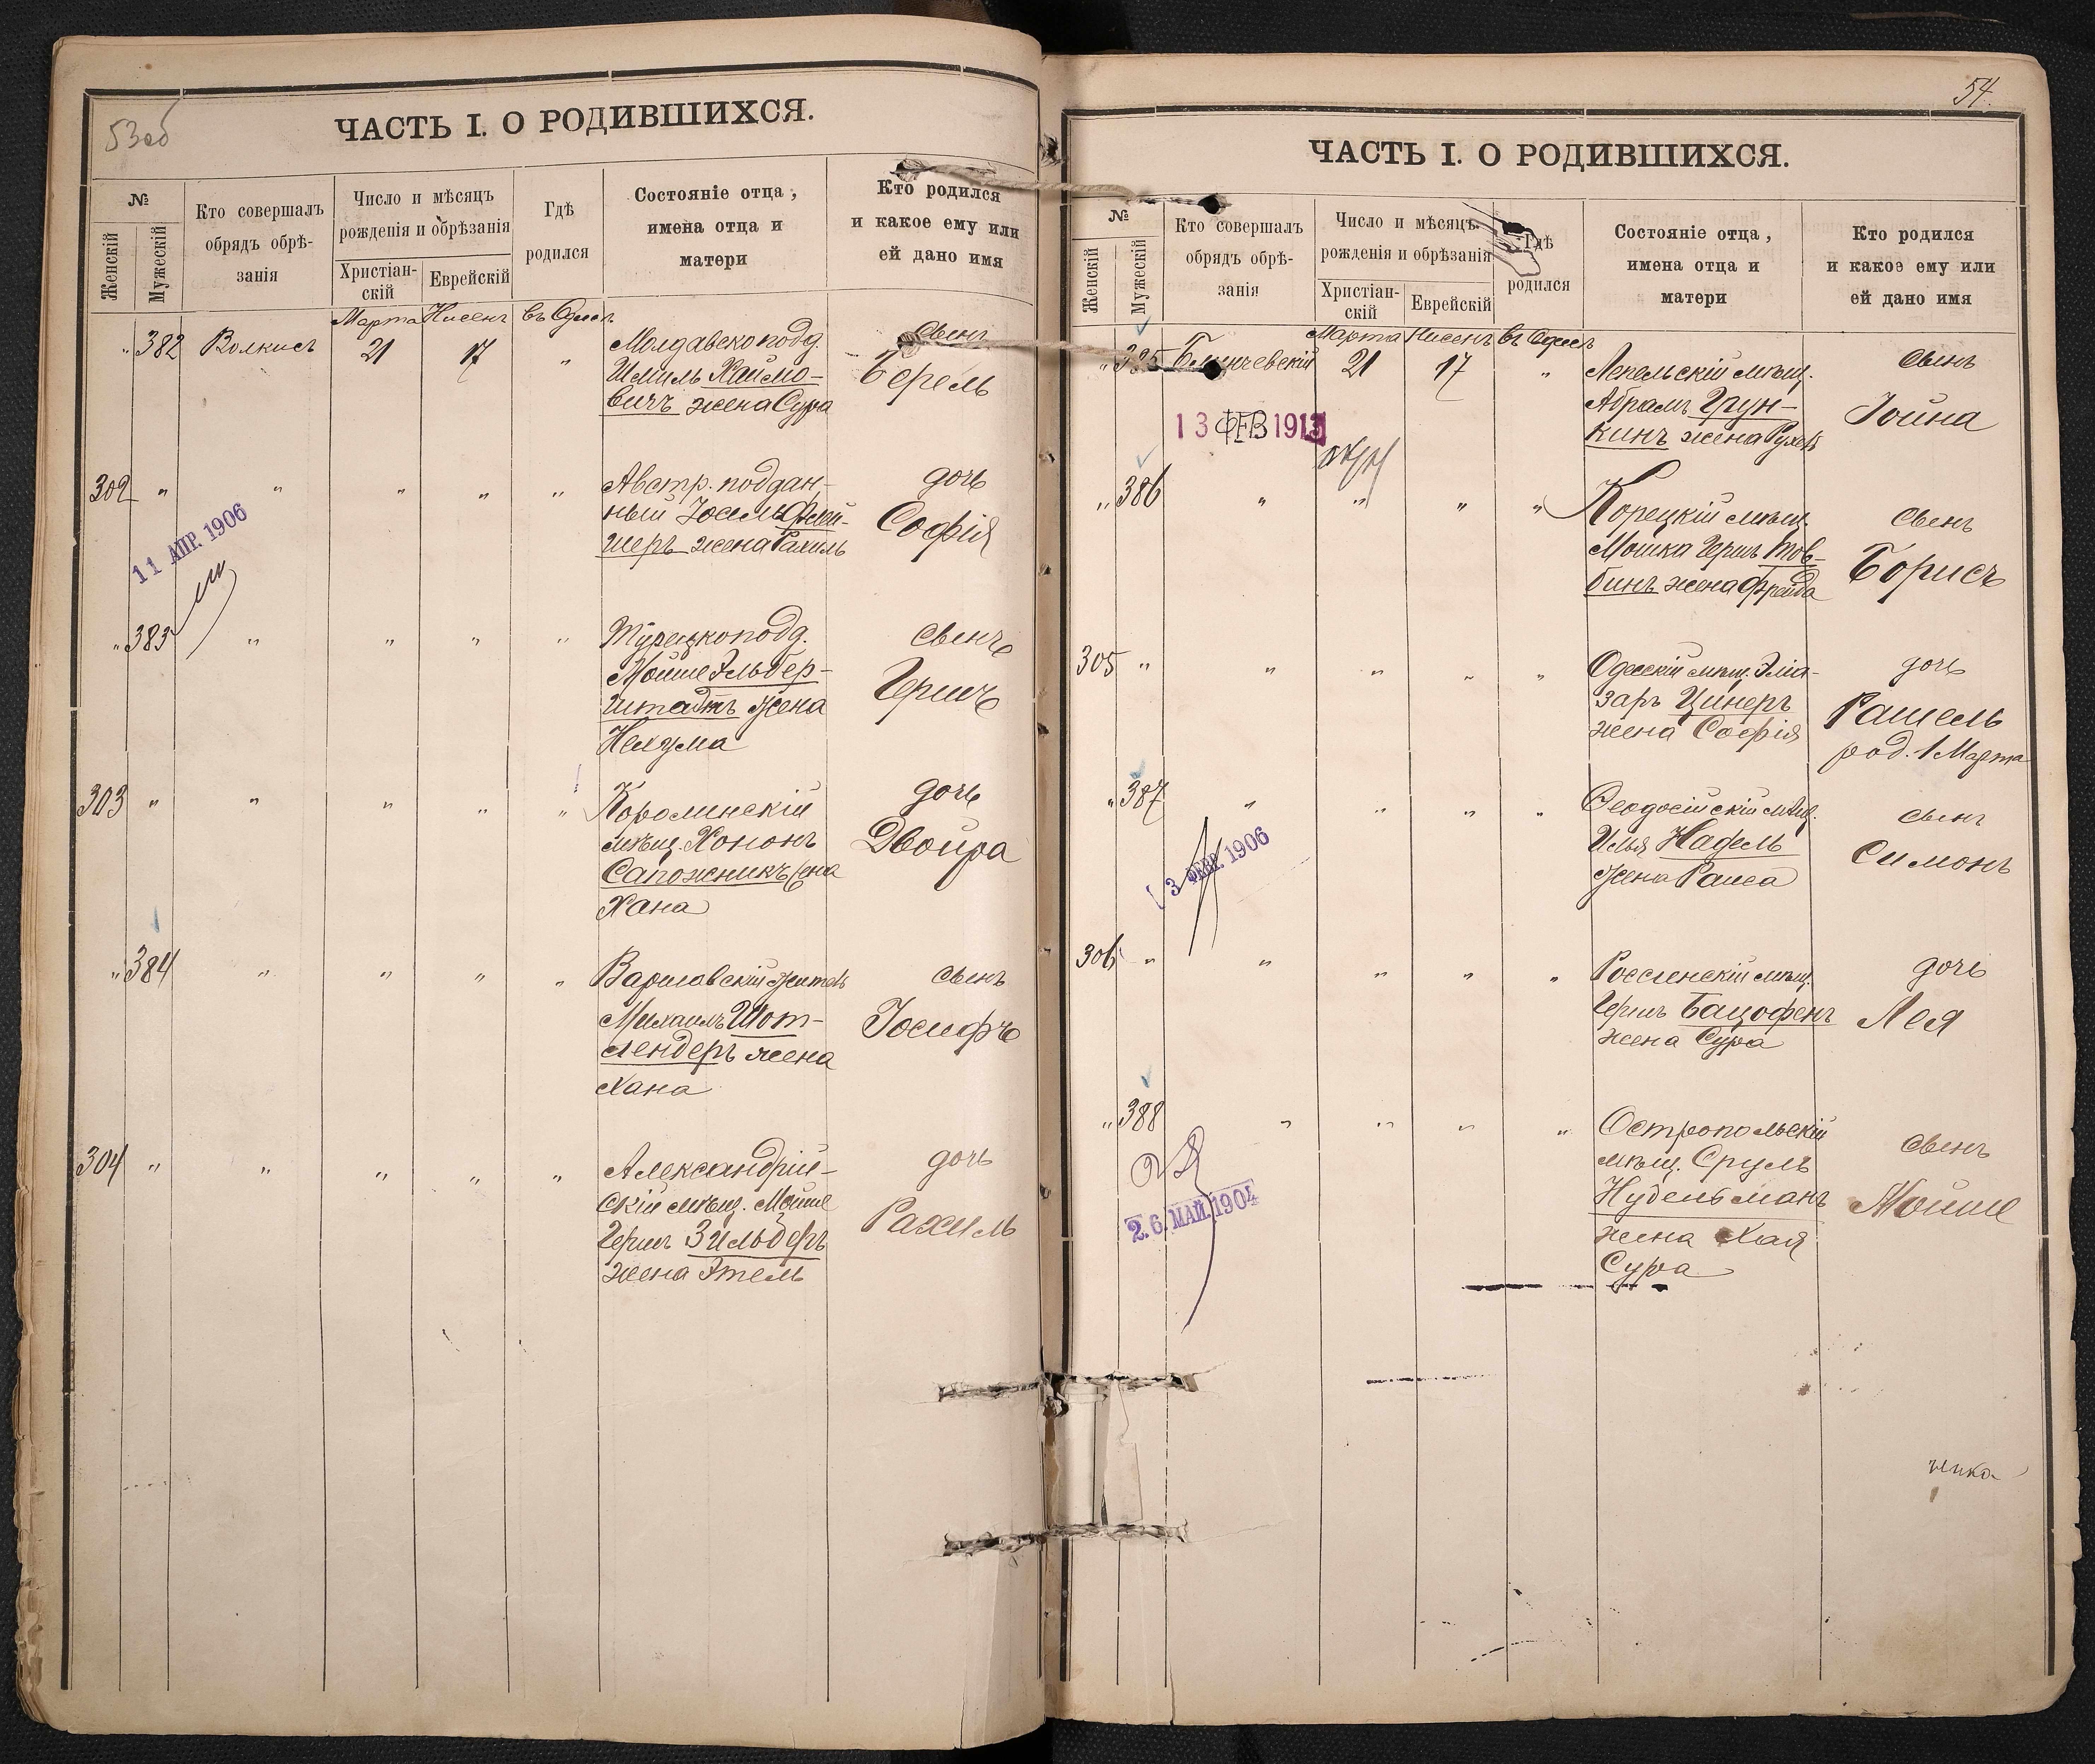 53об
ЧАСТЬ I. О РОДИВШИХСЯ.
№
Женскій
Мужескій
Кто совершалъ
обрядъ обрѣ-
занія
Число и мѣсяцъ
рожденія и обрѣзанія
Христіан-
скій
Еврейскій
Гдѣ
родился
Состояніе отца,
имена отца и
матери
Кто родился
и какое ему или
ей дано имя
Марта Нисенъ въ Одессѣ
" 382 Волкисъ 21 17 "
Молдавскоподд.
Шмиль Хаймо-
вичъ жена Сура
сынъ
Берель
302 " " " " "
Австр. поддан-
ный Іосель Флей-
шеръ жена Рахиль
дочь
Софія
11 АПР. 1906
" 383 " " " "
Турецкоподд.
Мойше Эльбер-
штадтъ жена
Нехума
сынъ
Гершъ
303 " " " " "
Королинскій
мѣщ. Хононъ
Сапожникъ жена
Хана
дочь
Двойра
" 384 " " " "
Варшавскій житель
Михаилъ Шот-
лендеръ жена
Хана
сынъ
Іосифъ
304 " " " " "
Александрій-
скій мѣщ. Мойше
Гершъ Зильберъ
жена Этель
дочь
Рахиль
54.
ЧАСТЬ I. О РОДИВШИХСЯ.
№
Женскій
Мужескій
Кто совершалъ
обрядъ обрѣ-
занія
Число и мѣсяцъ
рожденія и обрѣзанія
Христіан-
скій
Еврейскій
Гдѣ
родился
Состояніе отца,
имена отца и
матери
Кто родился
и какое ему или
ей дано имя
Марта Нисенъ въ Одессѣ
" 385 21 17 "
Лепельскій мѣщ.
Абрамъ Грун-
кинъ жена Рухля
сынъ
Іойна
13 ФЕВ 1913
" 386 " " " "
Корецкій мѣщ.
Мошка Гершъ Тов-
бинъ жена Фрейда
сынъ
Борисъ
305 " " " " "
Одесскій мѣщ. Эліа-
заръ Цинеръ
жена Софія
дочь
Рашель
род. 1 Марта
" 387 " " " "
Феодосійскій мѣщ.
Илья Надель
жена Раиса
сынъ
Симонъ
3 ФЕВР. 1906
306 " " " " "
Россіенскій мѣщ.
Гершъ Бацофенъ
жена Сура
дочь
Лея
" 388 " " " "
Остропольскій
мѣщ. Сруль
Нудельманъ
жена Хая
Сура
сынъ
Мойше
26. МАЙ 1904